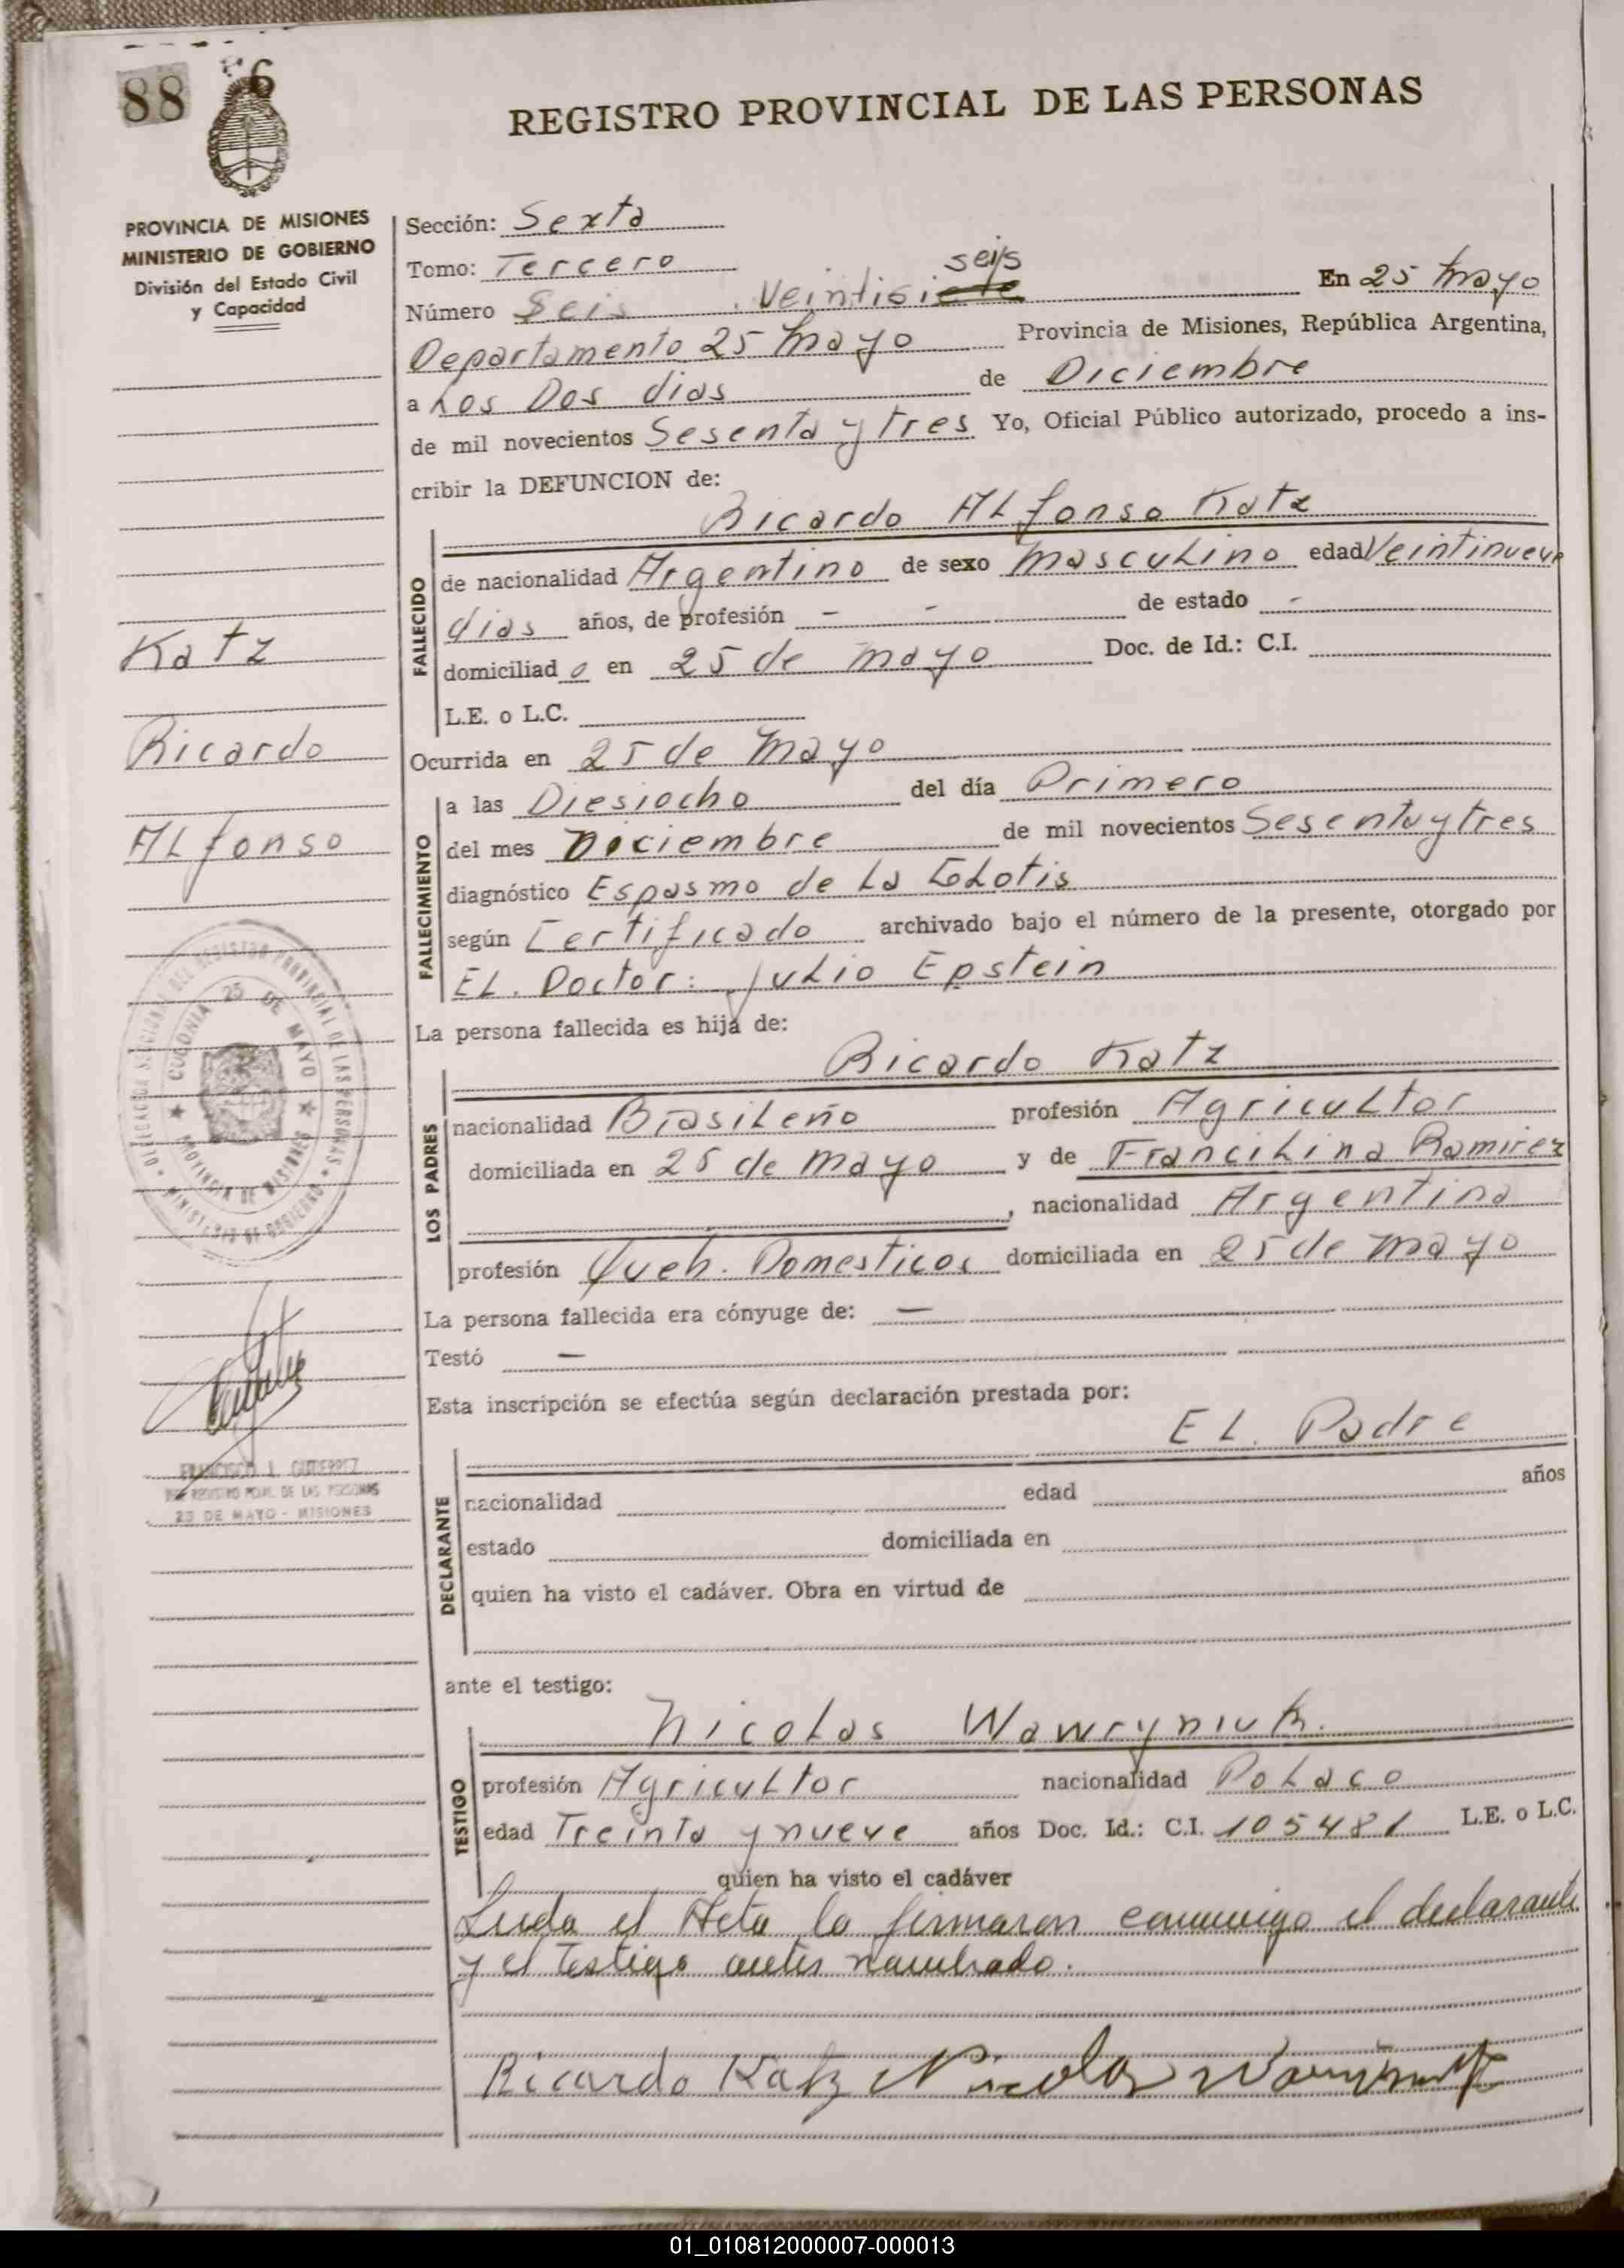 88
6
REGISTRO PROVINCIAL DE LAS PERSONAS
PROVINCIA DE MISIONES
MINISTERIO DE GOBIERNO
División del Estado Civil
y Capacidad
Katz
Ricardo
ALfonso
COLONIA 25 DE MAYO
PROVINCIA DE MISIONES
FRANCISCO J. GUTIERREZ
REGISTRO PCIAL. DE LAS PERSONAS
25 DE MAYO - MISIONES
Sección: Sexta
Tomo: Tercero
seis
Número Seis Veintisiete En 25 mayo
Departamento 25 mayo Provincia de Misiones, República Argentina,
a Los Dos dias de Diciembre
de mil novecientos Sesenta y tres Yo, Oficial Público autorizado, procedo a ins-
cribir la DEFUNCION de:
Ricardo ALfonso Katz
FALLECIDO
de nacionalidad Argentino de sexo mascuLino edad Veintinueve
dias años, de profesión - - de estado -
domiciliado en 25 de mayo Doc. de Id.: C.I.
L.E. o L.C.
Ocurrida en 25 de mayo
FALLECIMIENTO
a las Diesiocho del día Primero
del mes Diciembre de mil novecientos Sesentaytres
diagnóstico Espasmo de La GLotis
según Certificado archivado bajo el número de la presente, otorgado por
EL. Doctor: JuLio Epstein
La persona fallecida es hija de:
Ricardo Katz
LOS PADRES
nacionalidad BrasiLeño profesión AgricuLtor
domiciliada en 25 de mayo y de FranciLina Ramirez
, nacionalidad Argentina
profesión Queh. Domesticos domiciliada en 25 de mayo
La persona fallecida era cónyuge de: —
Testó —
Esta inscripción se efectúa según declaración prestada por:
EL. Padre
DECLARANTE
nacionalidad edad años
estado domiciliada en
quien ha visto el cadáver. Obra en virtud de
ante el testigo:
NicoLas Wawryniuk.
TESTIGO
profesión AgricuLtor nacionalidad PoLaco
edad Treinta y nueve años Doc. Id.: C.I. 105481 L.E. o L.C.
quien ha visto el cadáver
Leida el Acta la firmaron conmigo el declarante
y el testigo antes nombrado.
Ricardo Katz Nicolas
01_010812000007-000013